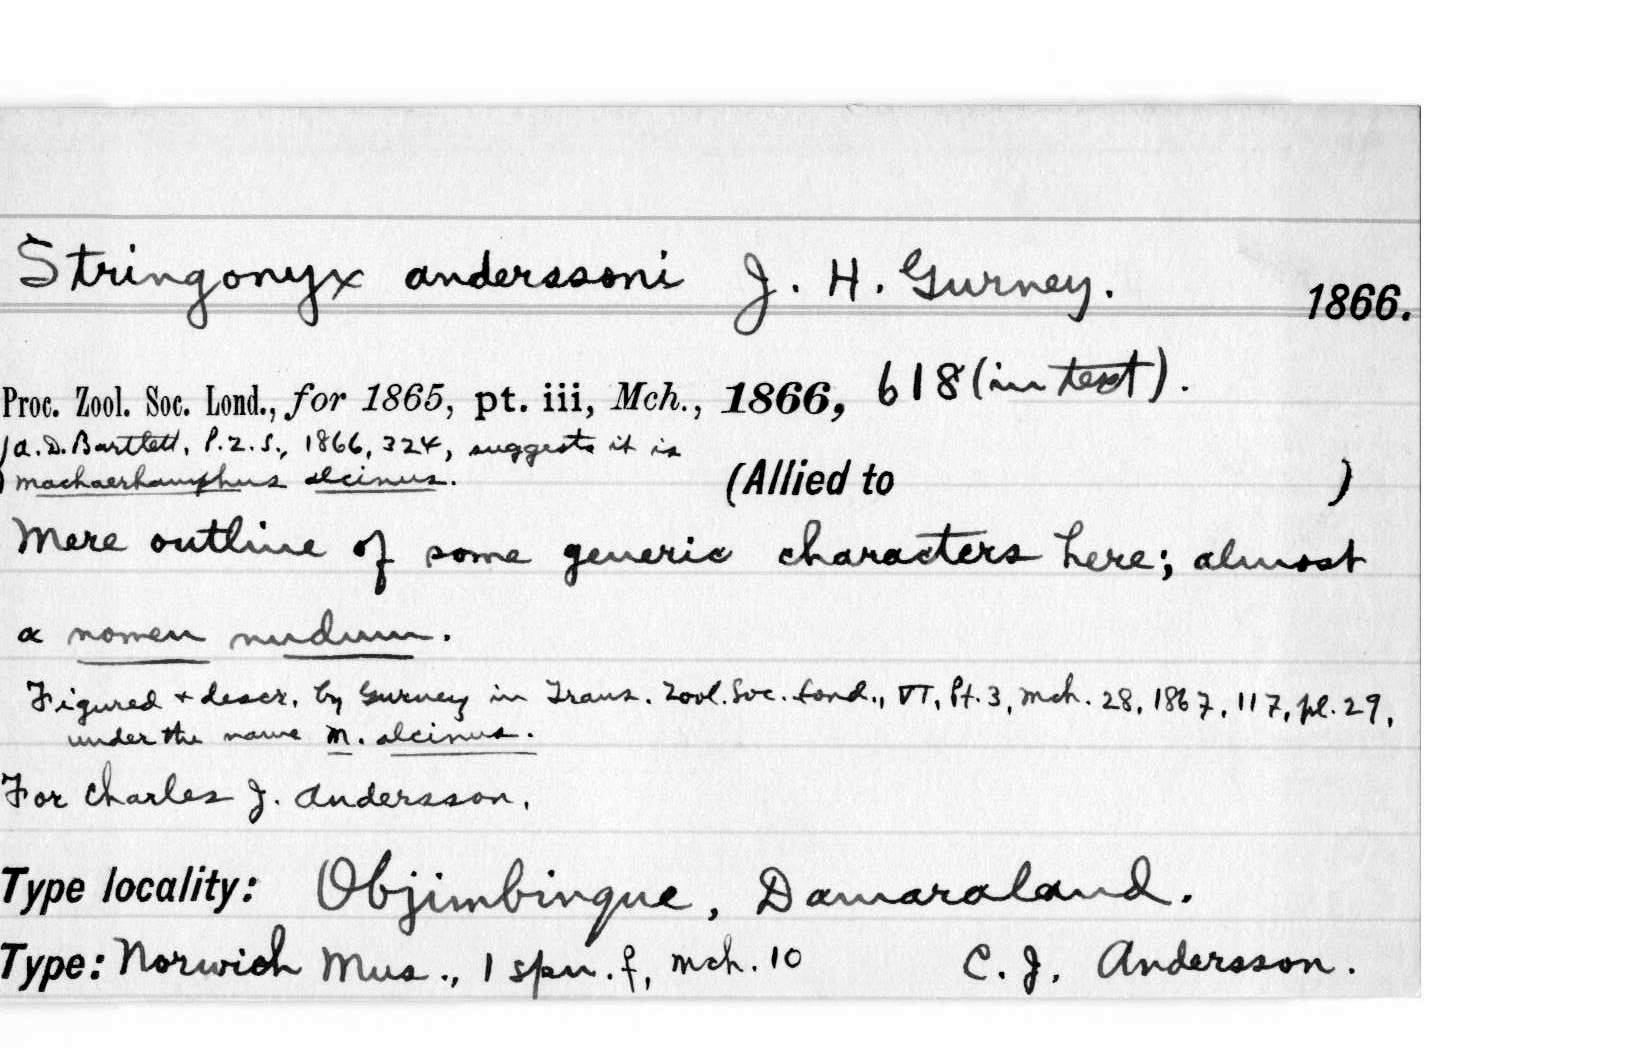 Stringonyx anderssoni J. H. Gurney. 1866.
Proc. Zool. Soc. Lond., for 1865, pt. iii, Mch., 1866, 618 (in text).
(A. D. Bartlett, P.Z.S., 1866, 324, suggests it is
machaerhamphus alcinus.
(Allied to )
Mere outline of some generic characters here; almost
a nomen nudum.
Figured + descr. by Gurney in Trans. Zool. Soc. Lond., VI, Pt. 3, Mch. 28, 1867, 117, pl. 29,
under the name M. alcinus.
For Charles J. Andersson.
Type locality: Objimbinque, Damaraland.
Type: Norwich Mus., 1 spn. f, Mch. 10 C. J. Andersson.